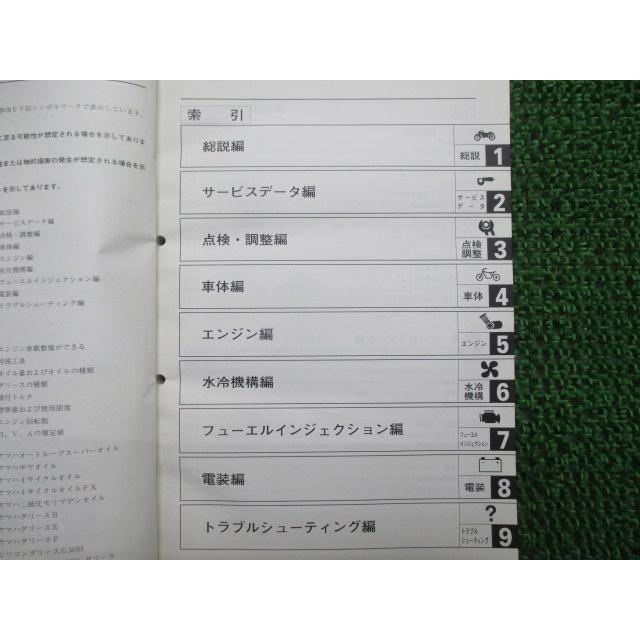 事項を下記シンボルマークで表示しています。
に至る可能性が想定される場合を示してありま
または物的損害の発生が想定される場合を示
を示してあります。
総説編
サービスデータ編
点検・調整編
車体編
エンジン編
水冷機構編
フューエルインジェクション編
電装編
トラブルシューティング編
エンジン車載整備ができる
特殊工具
オイル量およびオイルの種類
グリースの種類
締付トルク
標準値および使用限度
エンジン回転数
Ω、V、Aの規定値
ヤマハオートルーブスーパーオイル
ヤマハギヤオイル
ヤマハ4サイクルオイル
ヤマハ4サイクルオイルFX
ヤマハ二硫化モリブデンオイル
ヤマハグリースB
ヤマハグリースE
ヤマハグリースF
シリコングリースG30M
索 引
総説編
総説 1
サービスデータ編
サービスデータ 2
点検・調整編
点検調整 3
車体編
車体 4
エンジン編
エンジン 5
水冷機構編
水冷機構 6
フューエルインジェクション編
フューエルインジェクション 7
電装編
電装 8
トラブルシューティング編
?
トラブルシューティング 9